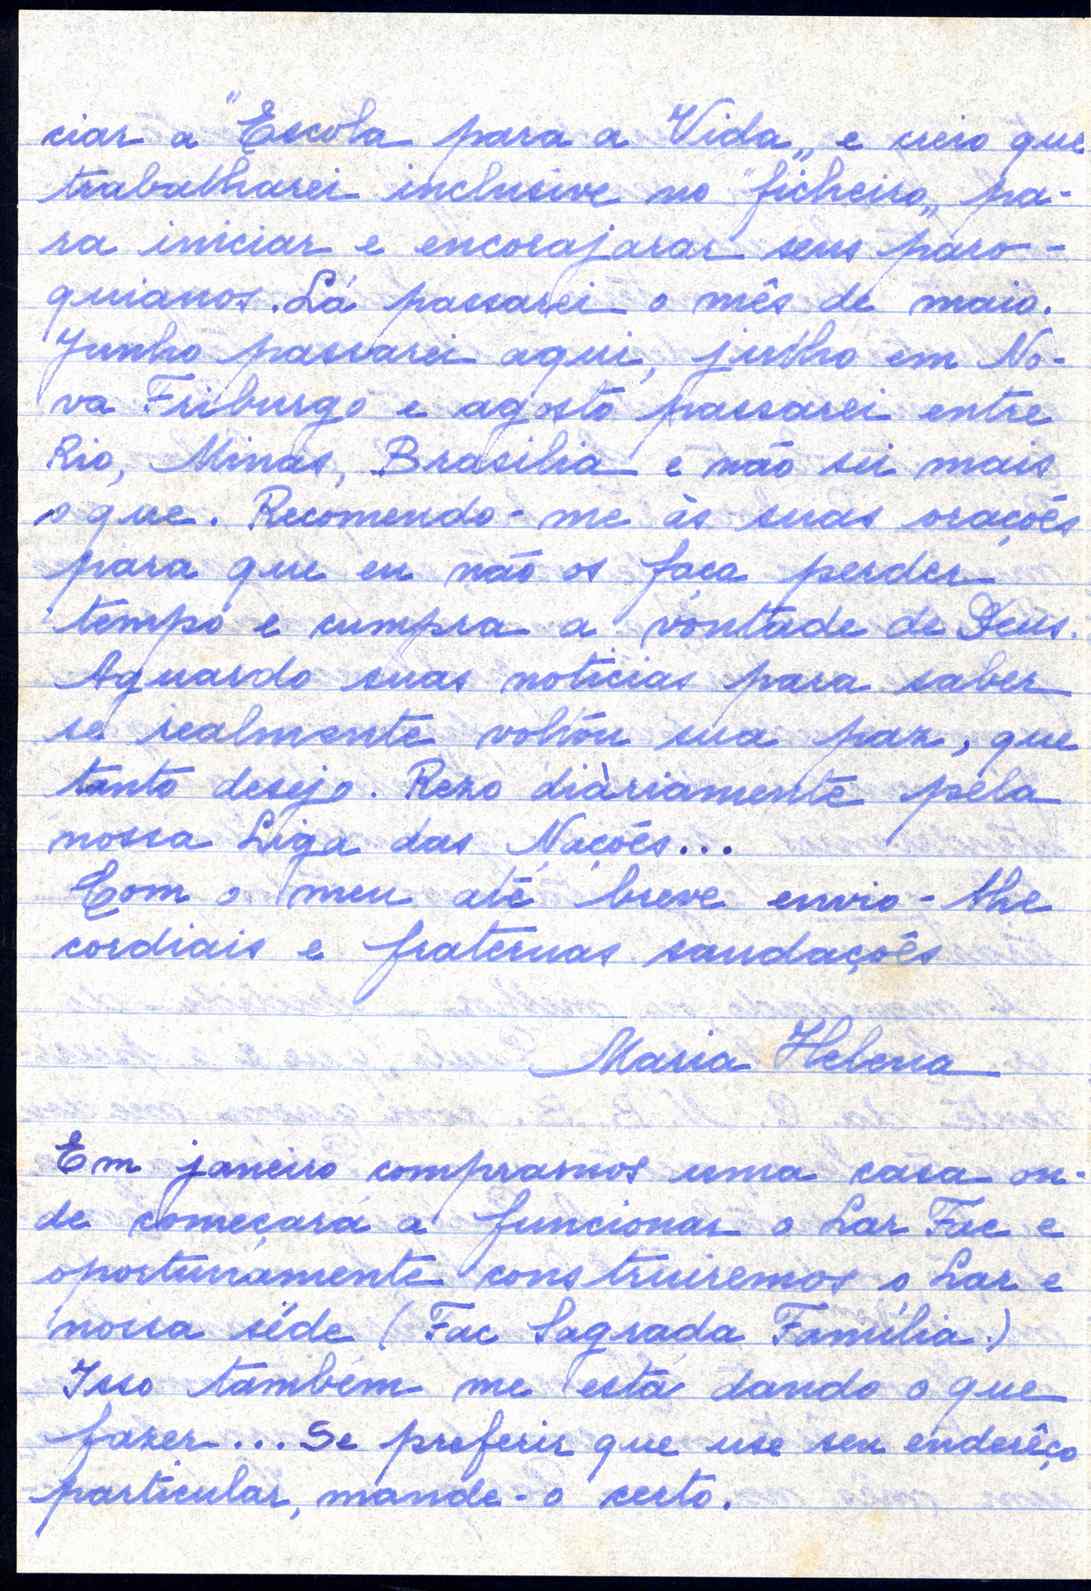 ciar a "Escola para a Vida„ e creio que
trabalharei inclusive no "ficheiro„ pa-
ra iniciar e encorajarar seus paro-
quianos. Lá passarei o mês de maio.
Junho passarei aqui, julho em No-
va Friburgo e agosto passarei entre
Rio, Minas, Brasilia e não sei mais
o que. Recomendo-me às suas orações
para que eu não os faça perder
tempo e cumpra a vontade de Deus.
Aguardo suas noticias para saber
se realmente voltou sua paz, que
tanto desejo. Rezo diàriamente pela
nossa Liga das Nações...
Com o meu até breve envio-lhe
cordiais e fraternas saudações
Maria Helena
Em janeiro compramos uma casa on-
de começará a funcionar o Lar Fac e
oportunamente construiremos o Lar e
nossa séde (Fac Sagrada Família.)
Isso também me está dando o que
fazer... Se preferir que use seu enderêço
particular, mande-o certo.